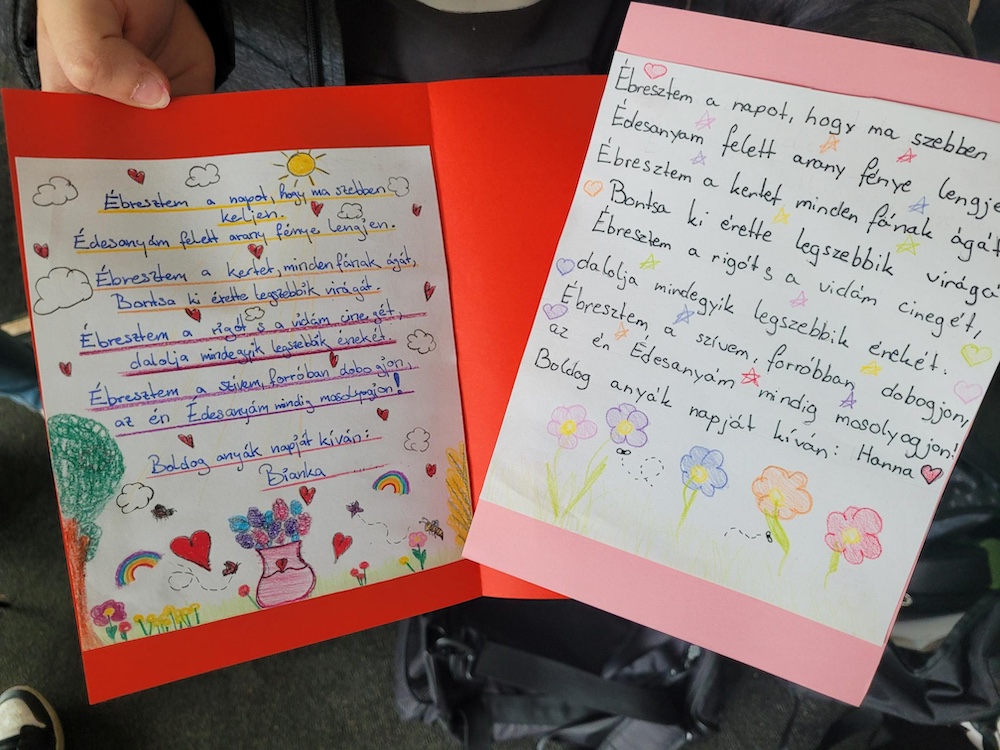 Ébresztem a napot, hogy ma szebben
keljen.
Édesanyám felett arany fénye lengjen.
Ébresztem a kertet, minden fának ágát,
Bontsa ki érette legszebbik virágát.
Ébresztem a rigót s a vidám cinegét,
dalolja mindegyik legszebbik énekét.
Ébresztem a szívem, forróban dobogjon,
az én Édesanyám mindig mosolyogjon!
Boldog anyák napját kíván:
Bianka
Ébresztem a napot, hogy ma szebben
Édesanyam felett arany fénye lengje
Ébresztem a kertet, minden fának ágát
Bontsa ki érette legszebbik virágá
Ébresztem a rigót s a vidám cinegét,
dalolja mindegyik legszebbik énekét.
Ébresztem a szívem, forróbban dobogjon,
az én Édesanyám mindig mosolyogjon!
Boldog anyák napját kíván: Hanna